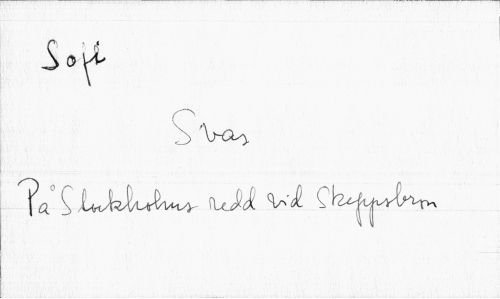 Sofi
Svar
På Stockholms redd vid Skeppsbron